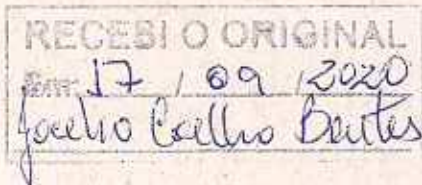 RECEBI O ORIGINAL
Em: 17 / 09 / 2020
Joelho Coelho Bentes